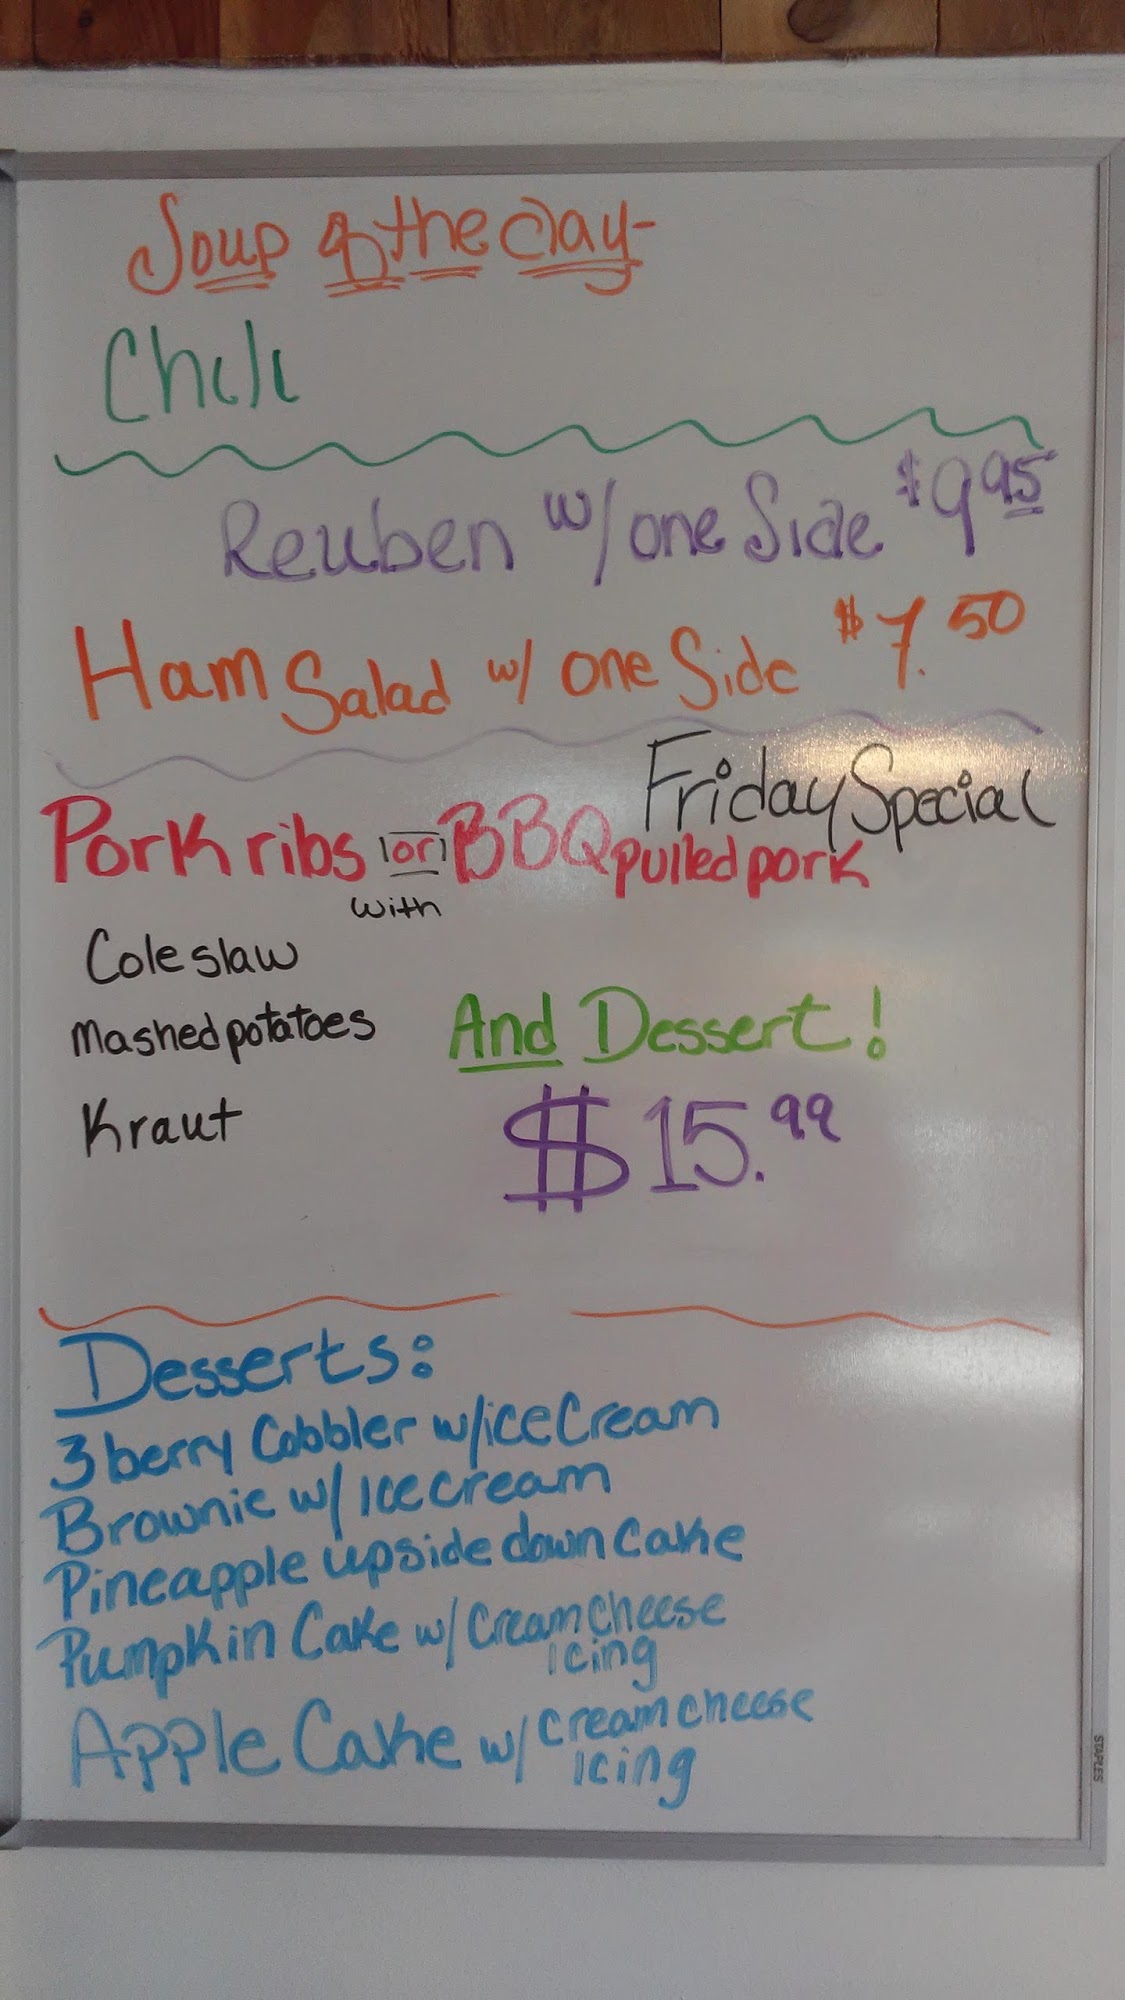 Soup of the day-
Chili
Reuben w/ one Side $9 95
Ham Salad w/ one Side $7.50
Friday Special
Pork ribs or BBQ pulled pork
with
Coleslaw
Mashed potatoes
And Dessert!
Kraut
$15.99
Desserts:
3 berry Cobbler w/ice Cream
Brownie w/ Ice cream
Pineapple upside down Cake
Pumpkin Cake w/ Cream Cheese
Icing
Apple Cake w/ Cream cheese
Icing
STAPLES